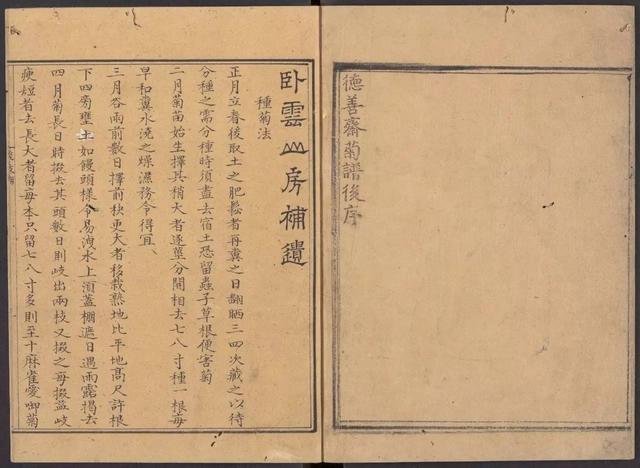 德善齋菊譜後序
卧雲山房補遺
種菊法
正月立春後取土之肥鬆者再糞之日翻晒三四次藏之以待
分種之需分種時須盡去宿土恐留蟲子草根便害菊
二月菊苗始生擇其稍大者逐莖分開相去七八寸種一根每
早和糞水澆之燥濕務令得宜
三月谷雨前數日擇前秧更大者移栽熟地比平地高尺許根
下四旁壅土如饅頭樣令易洩水上須蓋棚遮日遇雨露揭去
四月菊長日時掇去其頭數日則岐出兩枝又掇之每掇益岐
瘐短者去長大者留每本只留七八寸多則至十麻雀愛啣菊